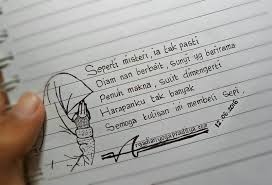 Seperti misteri, ia tak pasti
Diam nan berbait, Sunyi yg berirama
Penuh makna, sulit dimengerti
Harapanku tak banyak
Semoga tulisan ini memberi Sepi,
12.06.2016